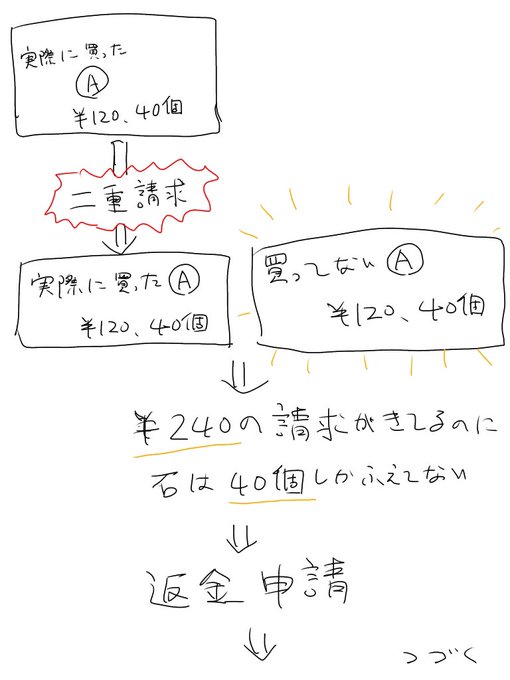 実際に買った
Ⓐ
¥120、40個
二重請求
実際に買ったⒶ
¥120、40個
買ってないⒶ
¥120、40個
¥240の請求がきてるのに
石は40個しかふえてない
返金申請
つづく